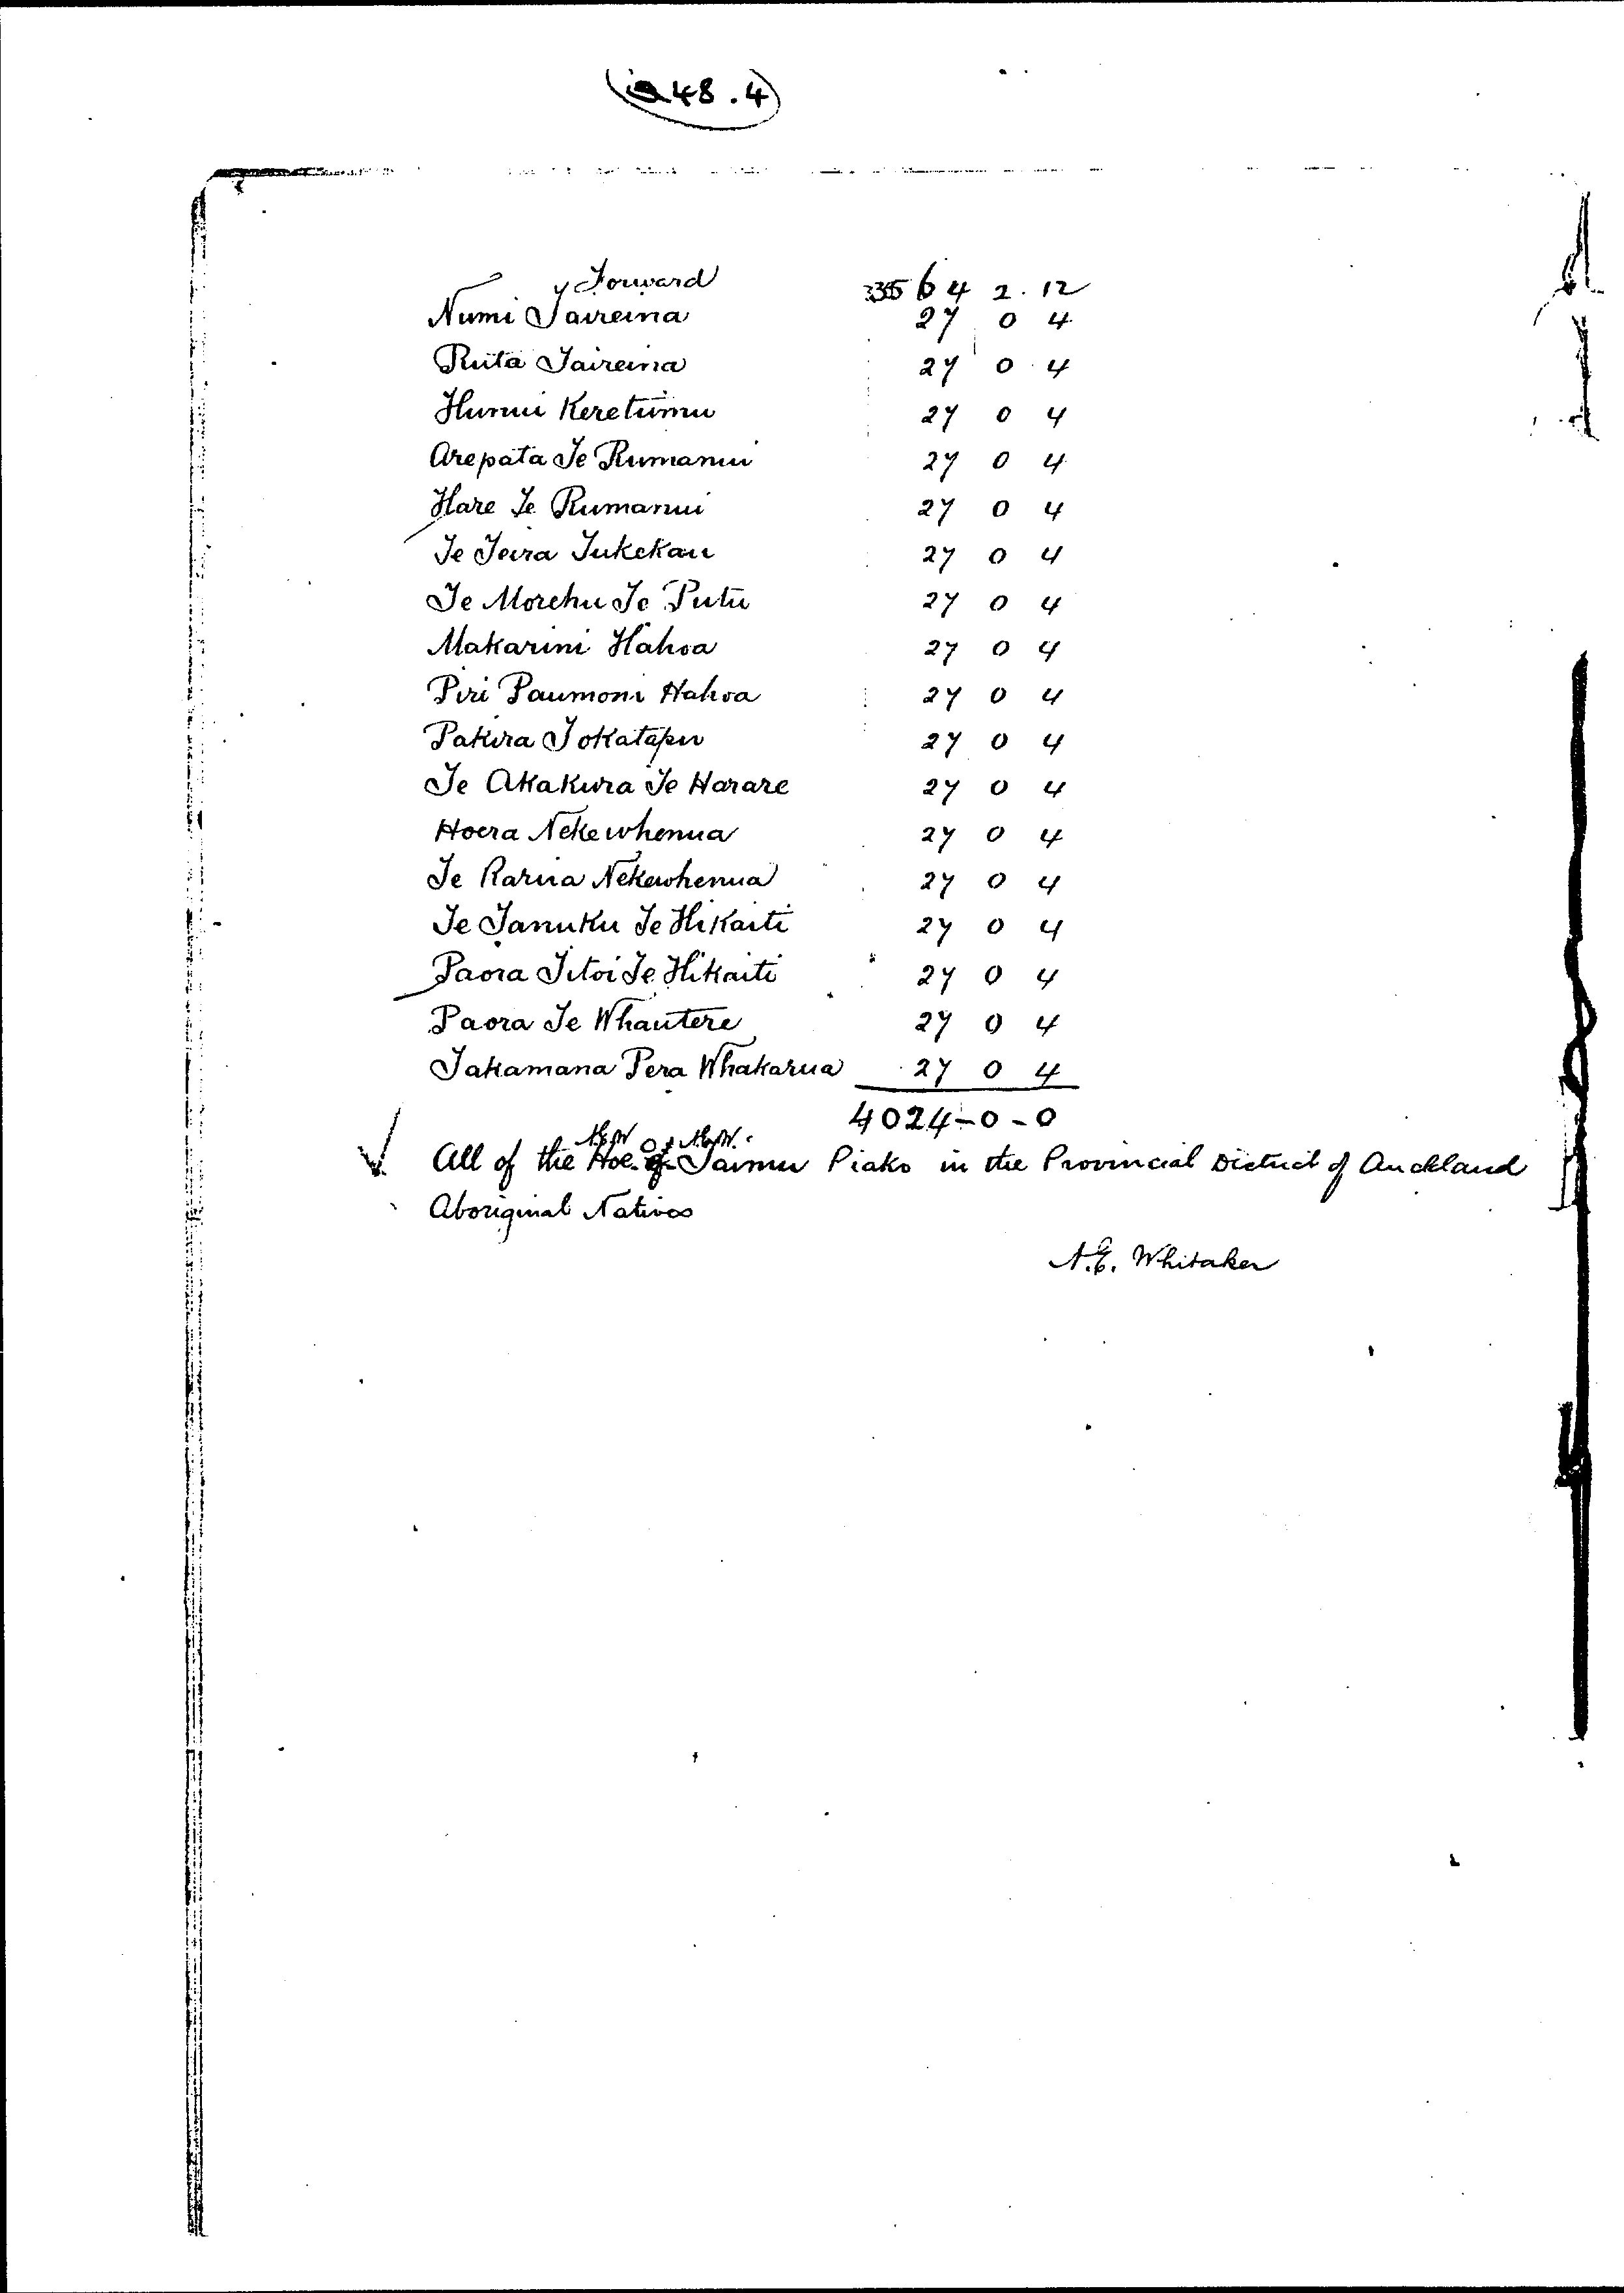 48.4
Forward 3564 2. 12
Numi Taireina 27 0 4
Ruta Taireina 27 0 4
Hunui Keretumu 27 0 4
Arepata Te Rumanui 27 0 4
Hare Te Rumanui 27 0 4
Te Teira Tukekau 27 0 4
Te Morehu Te Putu 27 0 4
Makarini Hahoa 27 0 4
Piri Paumoni Hahoa 27 0 4
Pakira Tokatapu 27 0 4
Te Akakura Te Harare 27 0 4
Hoera Nekewhenua 27 0 4
Te Rarua Nekewhenua 27 0 4
Te Tanuku Te Hikaiti 27 0 4
Paora Titoi Te Hikaiti 27 0 4
Paora Te Whautere 27 0 4
Takamana Pera Whakarua 27 0 4
4024-0-0
All of the Hoe of Tainui Piako in the Provincial District of Auckland
Aboriginal Natives
A.E. Whitaker